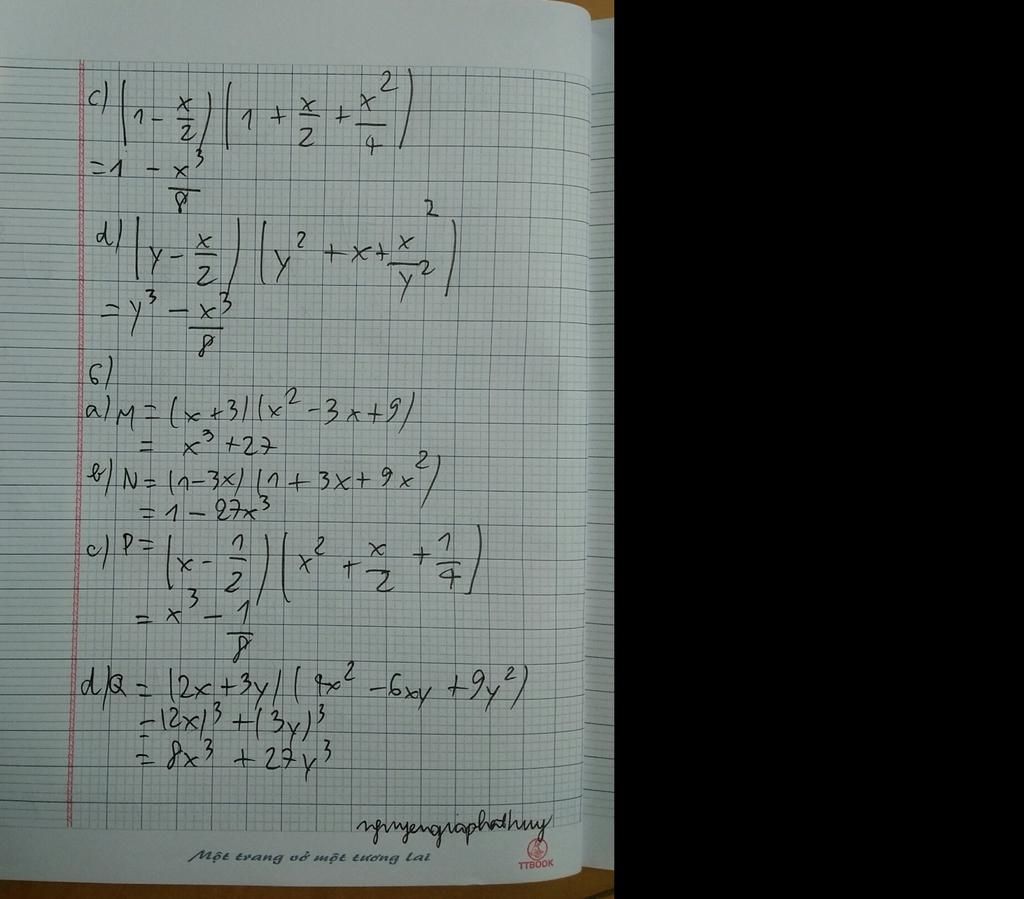 c) (1 - x/2) (1 + x/2 + x²/4)
= 1 - x³/8
d) (y - x/2) (y² + x + x²/y²)
= y³ - x³/8
6)
a) M = (x + 3) (x² - 3x + 9)
= x³ + 27
b) N = (1 - 3x) (1 + 3x + 9x²)
= 1 - 27x³
c) P = (x - 1/2) (x² + x/2 + 1/4)
= x³ - 1/8
d) Q = (2x + 3y) (4x² - 6xy + 9y²)
= (2x)³ + (3y)³
= 8x³ + 27y³
nguyengiaphathuy
Một trang vở một tương lai
TTBOOK